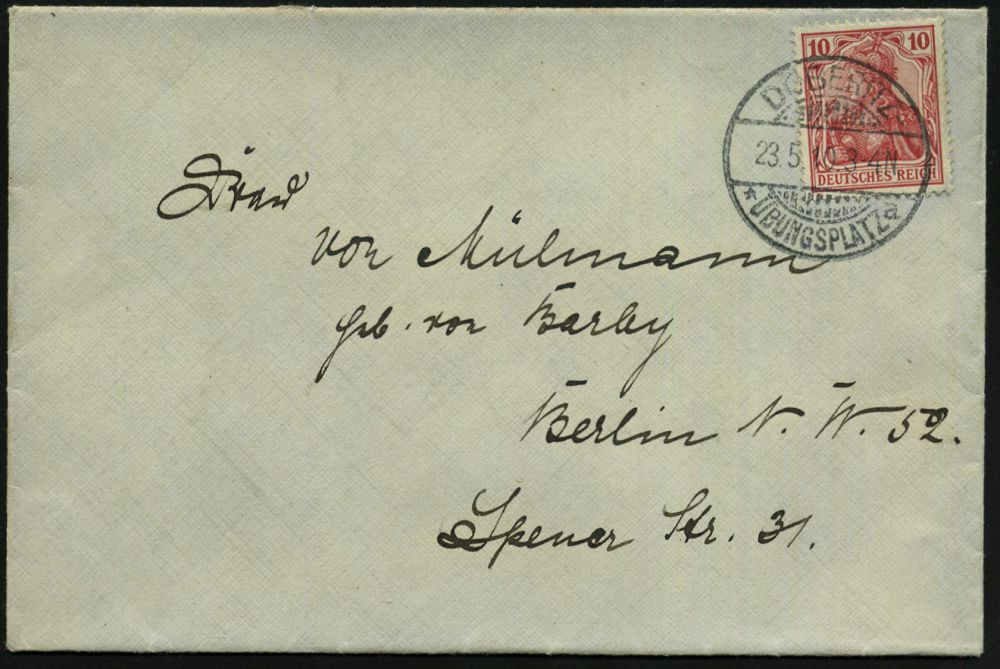 10 10
DEUTSCHES REICH
DÖBERITZ
23.5.10.3-4N
* ÜBUNGSPLATZ a
Frau
von Mülmann
geb. von Barby
Berlin N. W. 52.
Spener Str. 31.